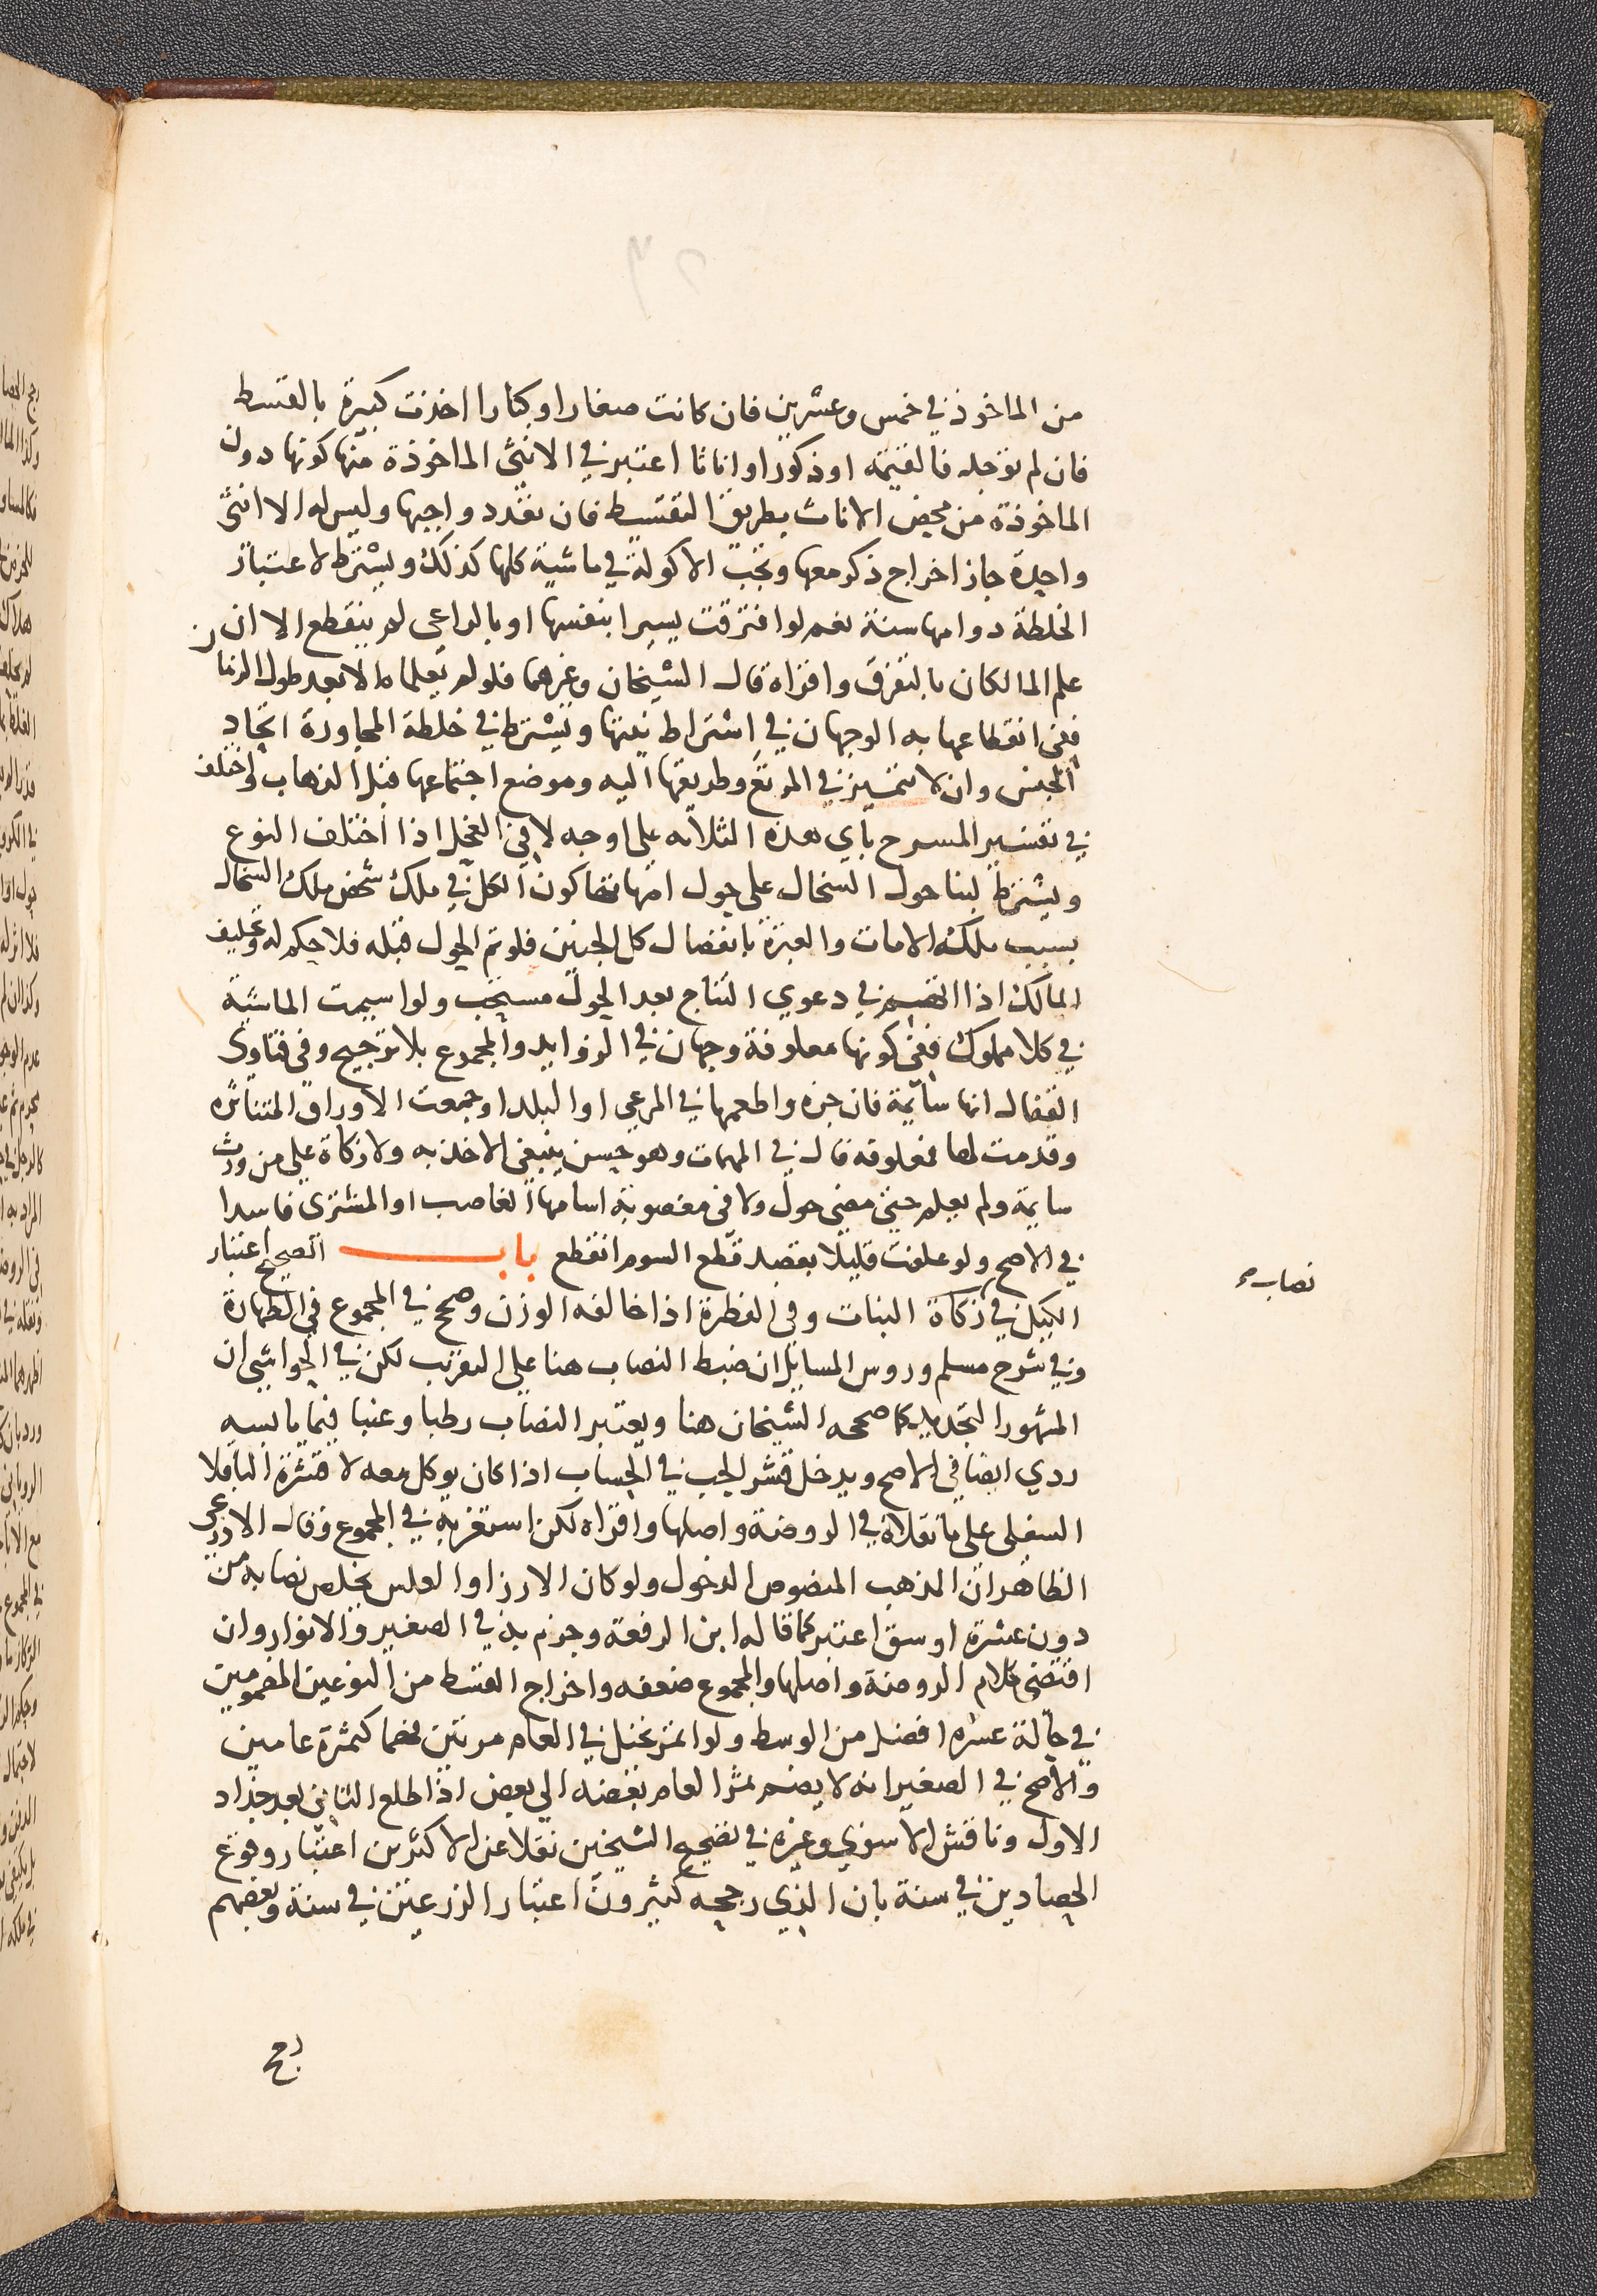 من الماخوذ في خمس وعشرين فان كانت صغارا وكبارا اخذت كبيرة بالقسط
فان لم توجد فالقيمة او ذكورا واناثا اعتبر في الانثى الماخوذة منها كونها دون
الماخوذة من محض الاناث بطريق التقسيط فان تعدد واجبها وليس له الا انثى
واحدة جاز اخراج ذكر معها وتجب الاكولة في ماشية كلها كذلك ويشترط لاعتبار
الخلطة دوامها سنة نعم لو افترقت يسيرا بنفسها او بالراعي لم ينقطع الا ان
علم المالكان بالتفرق واقراه قال الشيخان وغيرهما فلو لم يعلماه الا بعد طول الزمان
ففي انقطاعها به الوجهان في اشتراط نيتها ويشترط في خلطة المجاورة اتحاد
الجنس وان لا تتميز في المرتع وطريقها اليه وموضع اجتماعها قبل الذهاب واختلف
في تفسير المسرح باي هذه الثلاثة على اوجه لا في الفحل اذا اختلف النوع
ويشترط لبنا حول السخال على حول امهاتها كون الكل في ملك شخص ملك السخال
بسبب ملك الامات والعبرة بانفصال كل الجنين فلو تم الحول قبله فلا حكم له وتحليف
المالك اذا اتهم في دعوي النتاج بعد الحول مستحب ولو اسيمت الماشية
في كلا مملوك ففي كونها معلوفة وجهان في الزوايد والمجموع بلا ترجيح وفي فتاوى
القفال انها سائمة فان جزه واطعمها في المرعى او البلد او جمعت الاوراق المتناثره
وقدمت لها فمعلوفه قال في المهمات وهو حسن ينبغي الاخذ به ولا زكاة علي من ورث
سايمة ولم يعلم حتى مضى حول ولا في مغصوبة اسامها الغاصب او المشتري فاسدا
في الاصح ولو علفت قليلا بقصد قطع السوم انقطع باب الصحيح اعتبار
نصاب
الكيل في زكاة النبات وفي الفطرة اذا خالفه الوزن وصحح في المجموع في الطهارة
وفي شرح مسلم وروس المسايل ان ضبط النصاب هنا على التقريب لكن في الحواشي ان
المشهور التحديد كما صححه الشيخان هنا ويعتبر النصاب رطبا وعنبا فيما يابسه
ردي ايضا في الاصح ويدخل قشر الحب في الحساب اذا كان يوكل معه لا قشرة الباقلا
السفلى على ما نقلاه في الروضة واصلها واقراه لكن استغربه في المجموع وقال الاذرعي
الظاهر ان المذهب المنصوص الدخول ولو كان الارز او العلس يخلص نصابه من
دون عشرة اوسق اعتبر كما قاله ابن الرفعة وجزم به في الصغير والانوار وان
اقتضى كلام الروضة واصلها والمجموع ضعفه واخراج القسط من النوعين المضمومين
في حالة عسره افضل من الوسط ولو اثمر نخل في العام مرتين فهما كثمرة عامين
والاصح في الصغير انه لا يضم ثمر العام بعضه الي بعض اذا اطلع الثاني بعد جذاذ
الاول وناقش الاسنوي وغيره في تصحيح الشيخين نقلا عن الاكثرين اعتبار وقوع
الحصادين في سنة بان الذي رجحه كثيرون اعتبار الزرعين في سنة وبعضهم
رجح